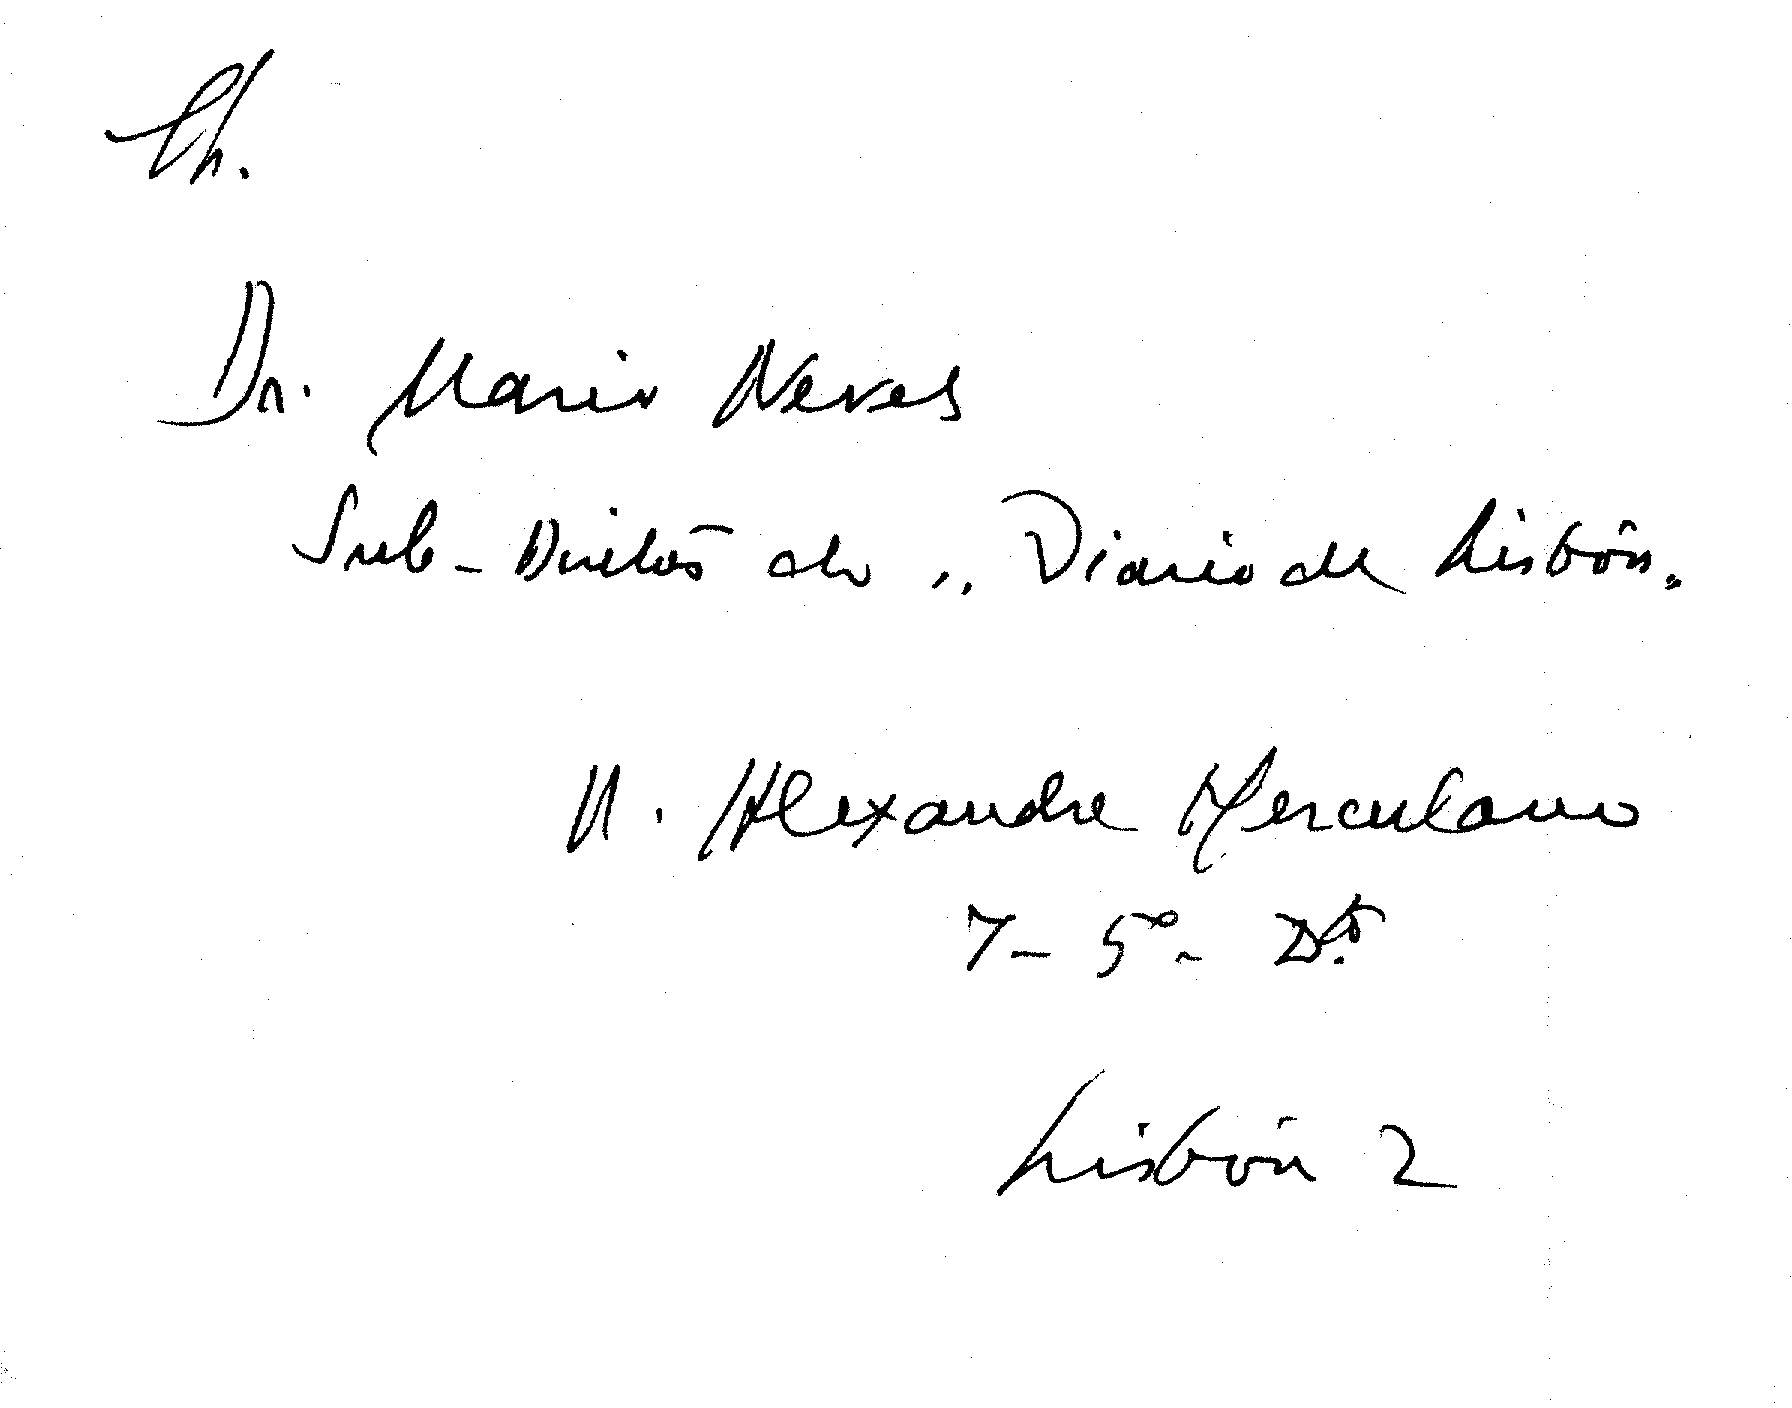 Dr. Mario Neves
Sub-Diretor do "Diario de Lisbôa"
R. Alexandre Herculano
7 - 5º - Dto
Lisbôa 2